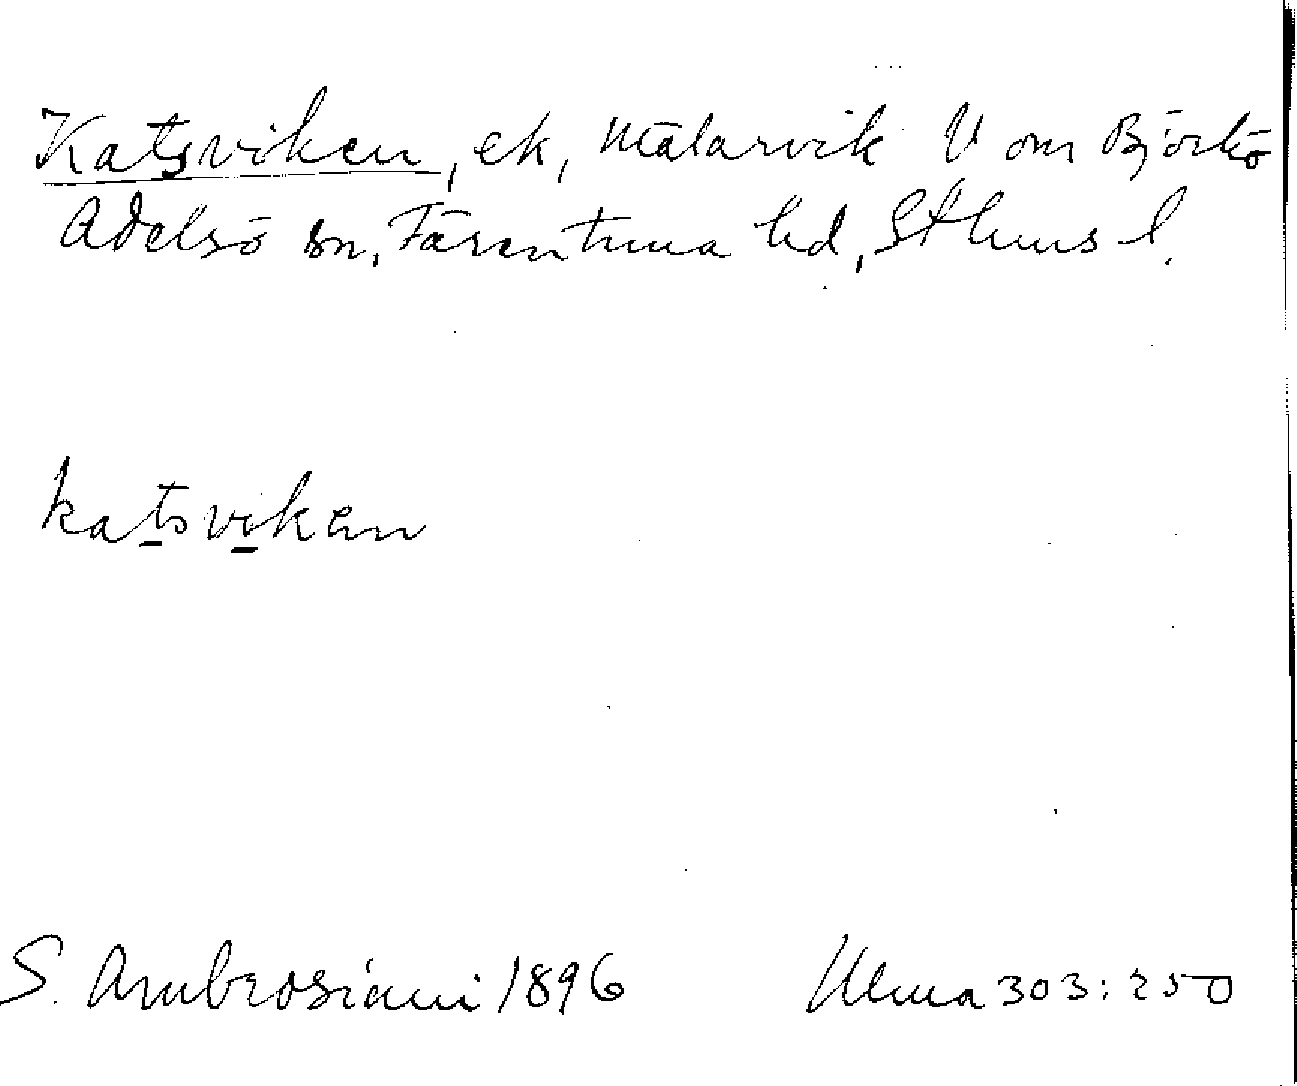 Katsviken, ek, Mälarvik V om Björkö
Adelsö sn, Färentuna hd, Sthms l.
katsviken
S. Ambrosiani 1896 Ulma 303:250